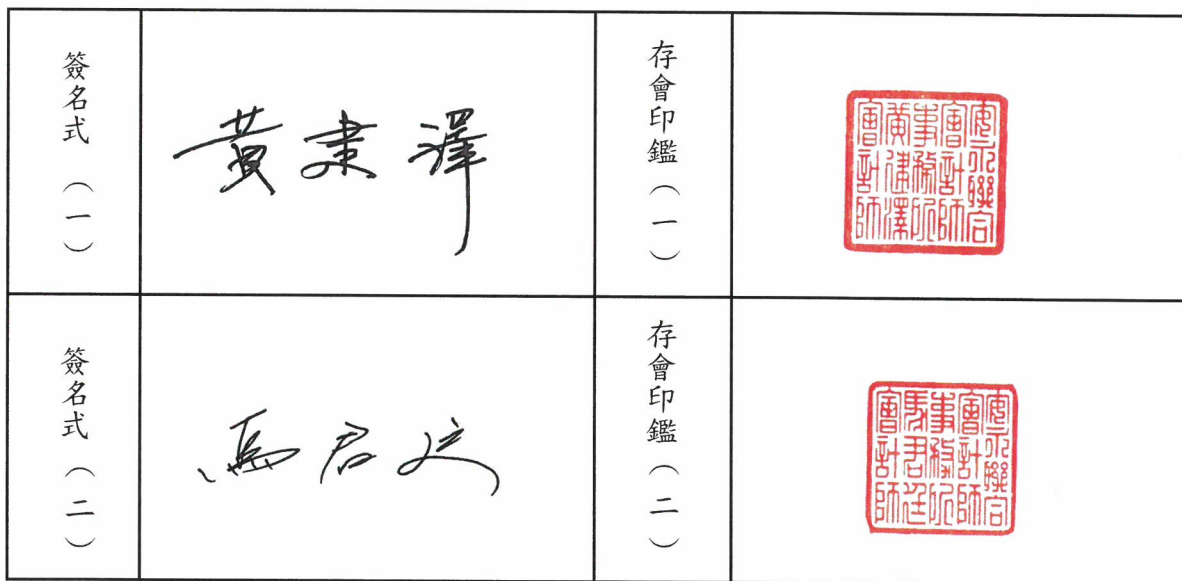 簽名式（一）
黃建澤
存會印鑑（一）
安永聯合會計師事務所黃建澤會計師
簽名式（二）
馬君廷
存會印鑑（二）
安永聯合會計師事務所馬君廷會計師